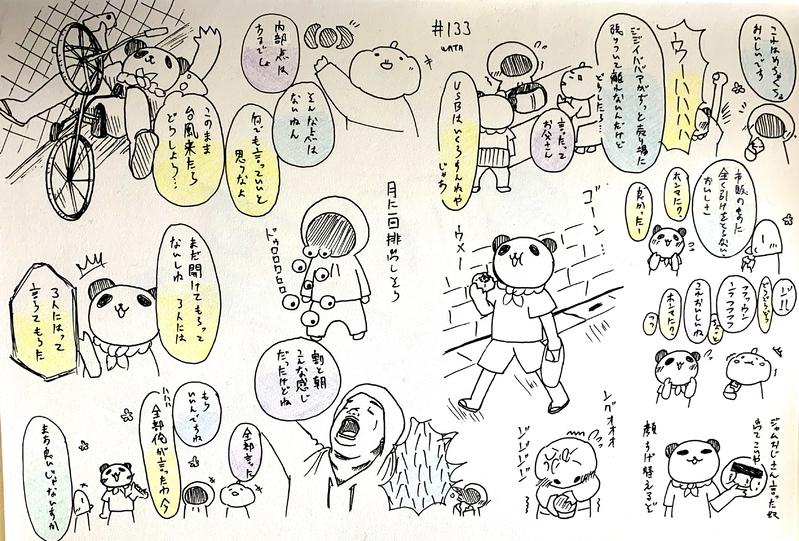 #133
WATA
これはめちゃくちゃ
おいしいです
ウーハハハハ
ジジイババアがずっと売り場に
張りついて離れないんだけど
どうしたら…
言ったって
お父さん
USBはいくらすんねや
じゃあ
内部点は
あるでしょ
そんな点は
ないねん
何でも言っていいと
思うなよ
このまま
台風来たら
どうしよう…
市販のものに
全く引けをとらない
おいしさ
ホンマに?
良かったー
ゴーン…
ウメー
月に一回排出しとう
ドゥロロロロ
まだ開けてもらって
ないしね 3人には
3人にはって
言うてもろた
ジー!!
どうどうどう
ファウンー
ラフフフフ
これおいしいね
ちょっと
ホンマに?
割と朝
こんな感じ
だったけどね
ングオオオ
ジャムおじさん言うた奴
出てこいや
顔すげ替えるど
全部言った
もう
いいんですね
ハハハ
全部俺が言ったわ今
まあ良いじゃないですか